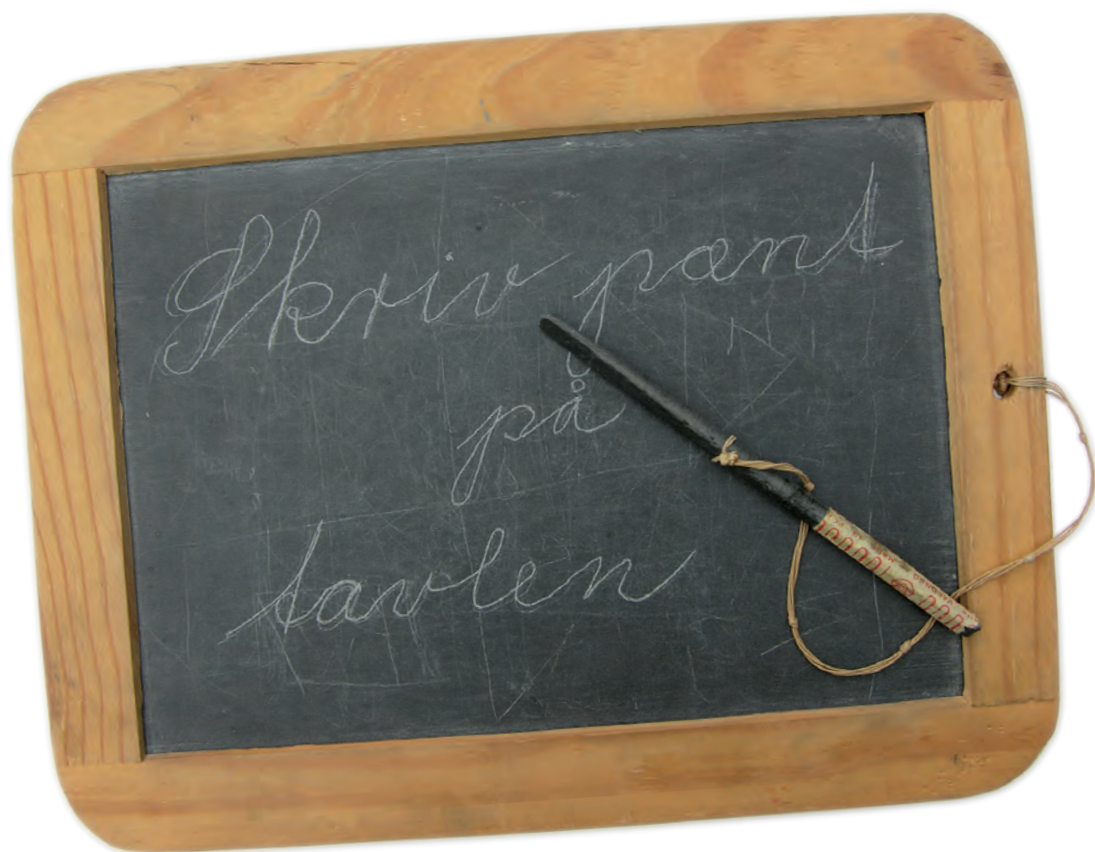 Skriv pænt
på
tavlen